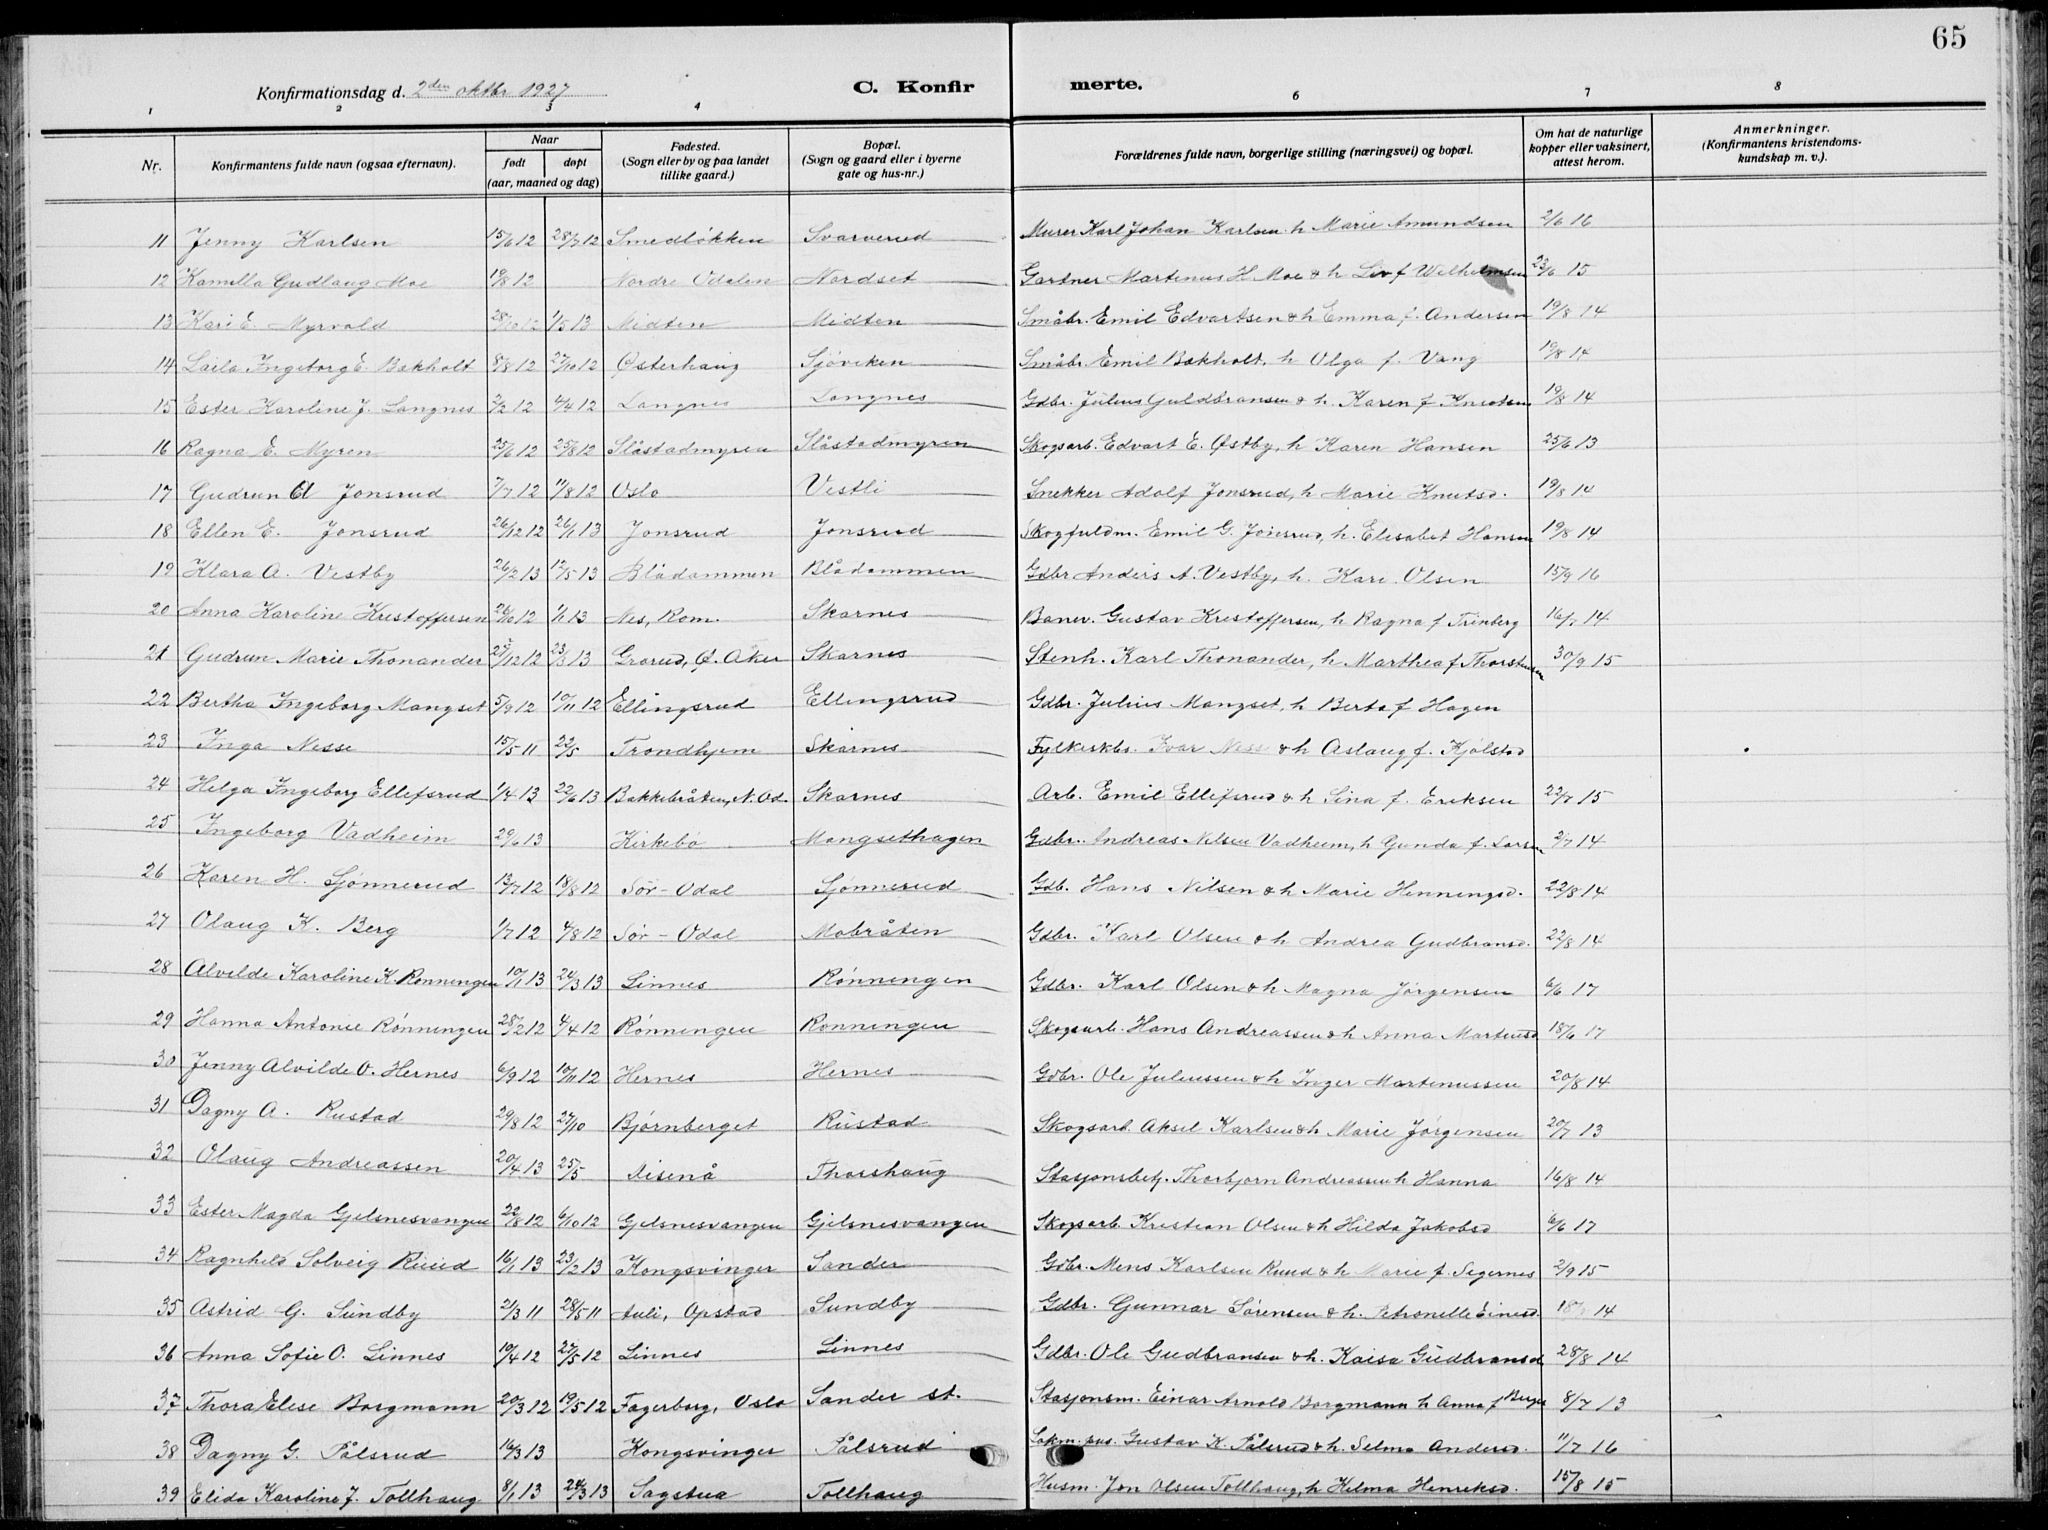 65
Konfirmationsdag d. 2den oktbr 1927 C. Konfir merte.
1 2 3 4 6 7 8
Nr. Konfirmantens fulde navn (ogsaa efternavn). Naar født døpt (aar, maaned og dag) Fødested. (Sogn eller by og paa landet tillike gaard.) Bopæl. (Sogn og gaard eller i byerne gate og hus-nr.) Forældrenes fulde navn, borgerlige stilling (næringsvei) og bopæl. Om hat de naturlige kopper eller vaksinert, attest herom. Anmerkninger. (Konfirmantens kristendoms-kundskap m. v.).
11 Jenny Karlsen 15/6 12 28/7 12 Smedløkken Svarverud Murer Karl Johan Karlsen h Marie Amundsen 2/6 16
12 Kamilla Gudlaug Moe 19/8 12 Nordre Odalen Nordset Gartner Martinus H Moe & h Liv f Wilhelmsen 23/6 15
13 Kari E. Myrvold 28/10 12 1/5 13 Midten Midten Småbr. Emil Edvartsen & h Emma f. Andersen 19/8 14
14 Laila Ingeborg E. Bakholt 8/8 12 27/10 12 Østerhaug Sjøviken Småbr. Emil Bakholt, h Olga f. Vang 19/8 14
15 Ester Karoline J. Langnes 2/2 12 4/4 12 Langnes Langnes Gdbr. Julius Guldbransen & h. Karen f Knutsen 19/8 14
16 Ragna E. Myren 25/6 12 25/8 12 Slåstadmyren Slåstadmyren Skogsarb. Edvart E. Østby, h Karen Hansen 25/6 13
17 Gudrun A Jonsrud 7/7 12 11/8 12 Oslo Vestli Snekker Adolf Jonsrud, h Marie Knutsd. 19/8 14
18 Ellen E. Jonsrud 26/12 12 26/1 13 Jonsrud Jonsrud Skogfuldm. Emil G. Jonsrud, h. Elisabet Hansen 19/8 14
19 Klara A. Vestby 26/2 13 12/5 13 Blådammen Blådammen Gdbr Anders A. Vestby, h. Kari Olsen 15/9 16
20 Anna Karoline Kristoffersen 26/10 12 1/1 13 Nes, Rom. Skarnes Banev. Gustav Kristoffersen, h Ragna f Trinborg 16/7 14
21 Gudrun Marie Thonander 27/12 12 23/3 13 Grorud, Ø. Aker Skarnes Stenh. Karl Thonander, h Marthea f Thorstensen 30/9 15
22 Bertha Ingeborg Mangset 5/9 12 10/11 12 Ellingsrud Ellingsrud Gdbr. Julius Mangset, h Berta f Hagen
23 Inga Nesse 15/5 11 22/5 Trondhjem Skarnes Fylkeskbs. Ivar Ness & h Aslaug f. Kjølstad
24 Helga Ingeborg Ellefsrud 1/4 13 22/6 13 Bakkebråten, N. Od. Skarnes Arb. Emil Ellefsrud & h Sina f. Eriksen 22/7 15
25 Ingeborg Vadheim 29/6 13 Kirkebø Mangsethagen Gdbr. Andreas Nilsen Vadheim, h Gunda f. Larsen 2/7 14
26 Karen H. Sjønnerud 13/7 12 18/8 12 Sør-Odal Sjønnerud Gdb. Hans Nilsen & h Marie Henningsd. 22/8 14
27 Olaug K. Berg 1/7 12 4/8 12 Sør-Odal Mobråten Gdbr. Karl Olsen & h Andrea Gudbransd. 22/8 14
28 Alvilde Karoline K. Rønningen 10/1 13 24/3 13 Linnes Rønningen Gdbr. Karl Olsen & h Magna Jørgensen 6/6 17
29 Hanna Antonie Rønningen 28/2 12 4/4 12 Rønningen Rønningen Skogsarb. Hans Andreassen & h Anna Martinsd 18/6 17
30 Jenny Alvilde O. Hernes 6/9 12 10/11 12 Hernes Hernes Gdbr. Ole Juliussen & h Inger Martinussen 20/8 14
31 Dagny A. Rustad 29/8 12 27/10 Bjørnberget Rustad Skogsarb. Aksel Karlsen & h Marie Jørgensen 20/7 13
32 Olaug Andreassen 20/4 13 25/5 Disenå Thorshaug Stasjonsbetj. Thorbjørn Andreassen h Hanna 16/8 14
33 Ester Magda Gjelsnesvangen 22/8 12 6/10 12 Gjelsnesvangen Gjelsnesvangen Skogsarb Kristian Olsen & h Hilda Jakobsd 6/6 17
34 Ragnhild Solveig Ruud 16/1 13 23/2 13 Kongsvinger Sander Gdbr. Mens Karlsen Ruud & h Marie f. Segernes 2/9 15
35 Astrid G. Sundby 2/3 11 28/5 11 Auli, Opstad Sundby Gdbr. Gunnar Sørensen & h. Petronelle Einesd. 14
36 Anna Sofie O. Linnes 10/4 12 27/5 12 Linnes Linnes Gdbr. Ole Gudbransen & h. Kaisa Gudbransd 28/8 14
37 Thora Elise Borgmann 20/3 12 19/5 12 Fagerborg, Oslo Sander st. Stasjonsm. Einar Arnold Borgmann h Anna f Berger 8/7 13
38 Dagny G. Pålsrud 16/3 13 Kongsvinger Pålsrud Lokm. pus. Gustav K. Pålsrud & h. Selma Andersd. 11/7 16
39 Elida Karoline J. Tollhaug 8/1 13 24/3 13 Sagstua Tollhaug Husm. Jon Olsen Tollhaug, h Hilma Henriksd. 15/8 15